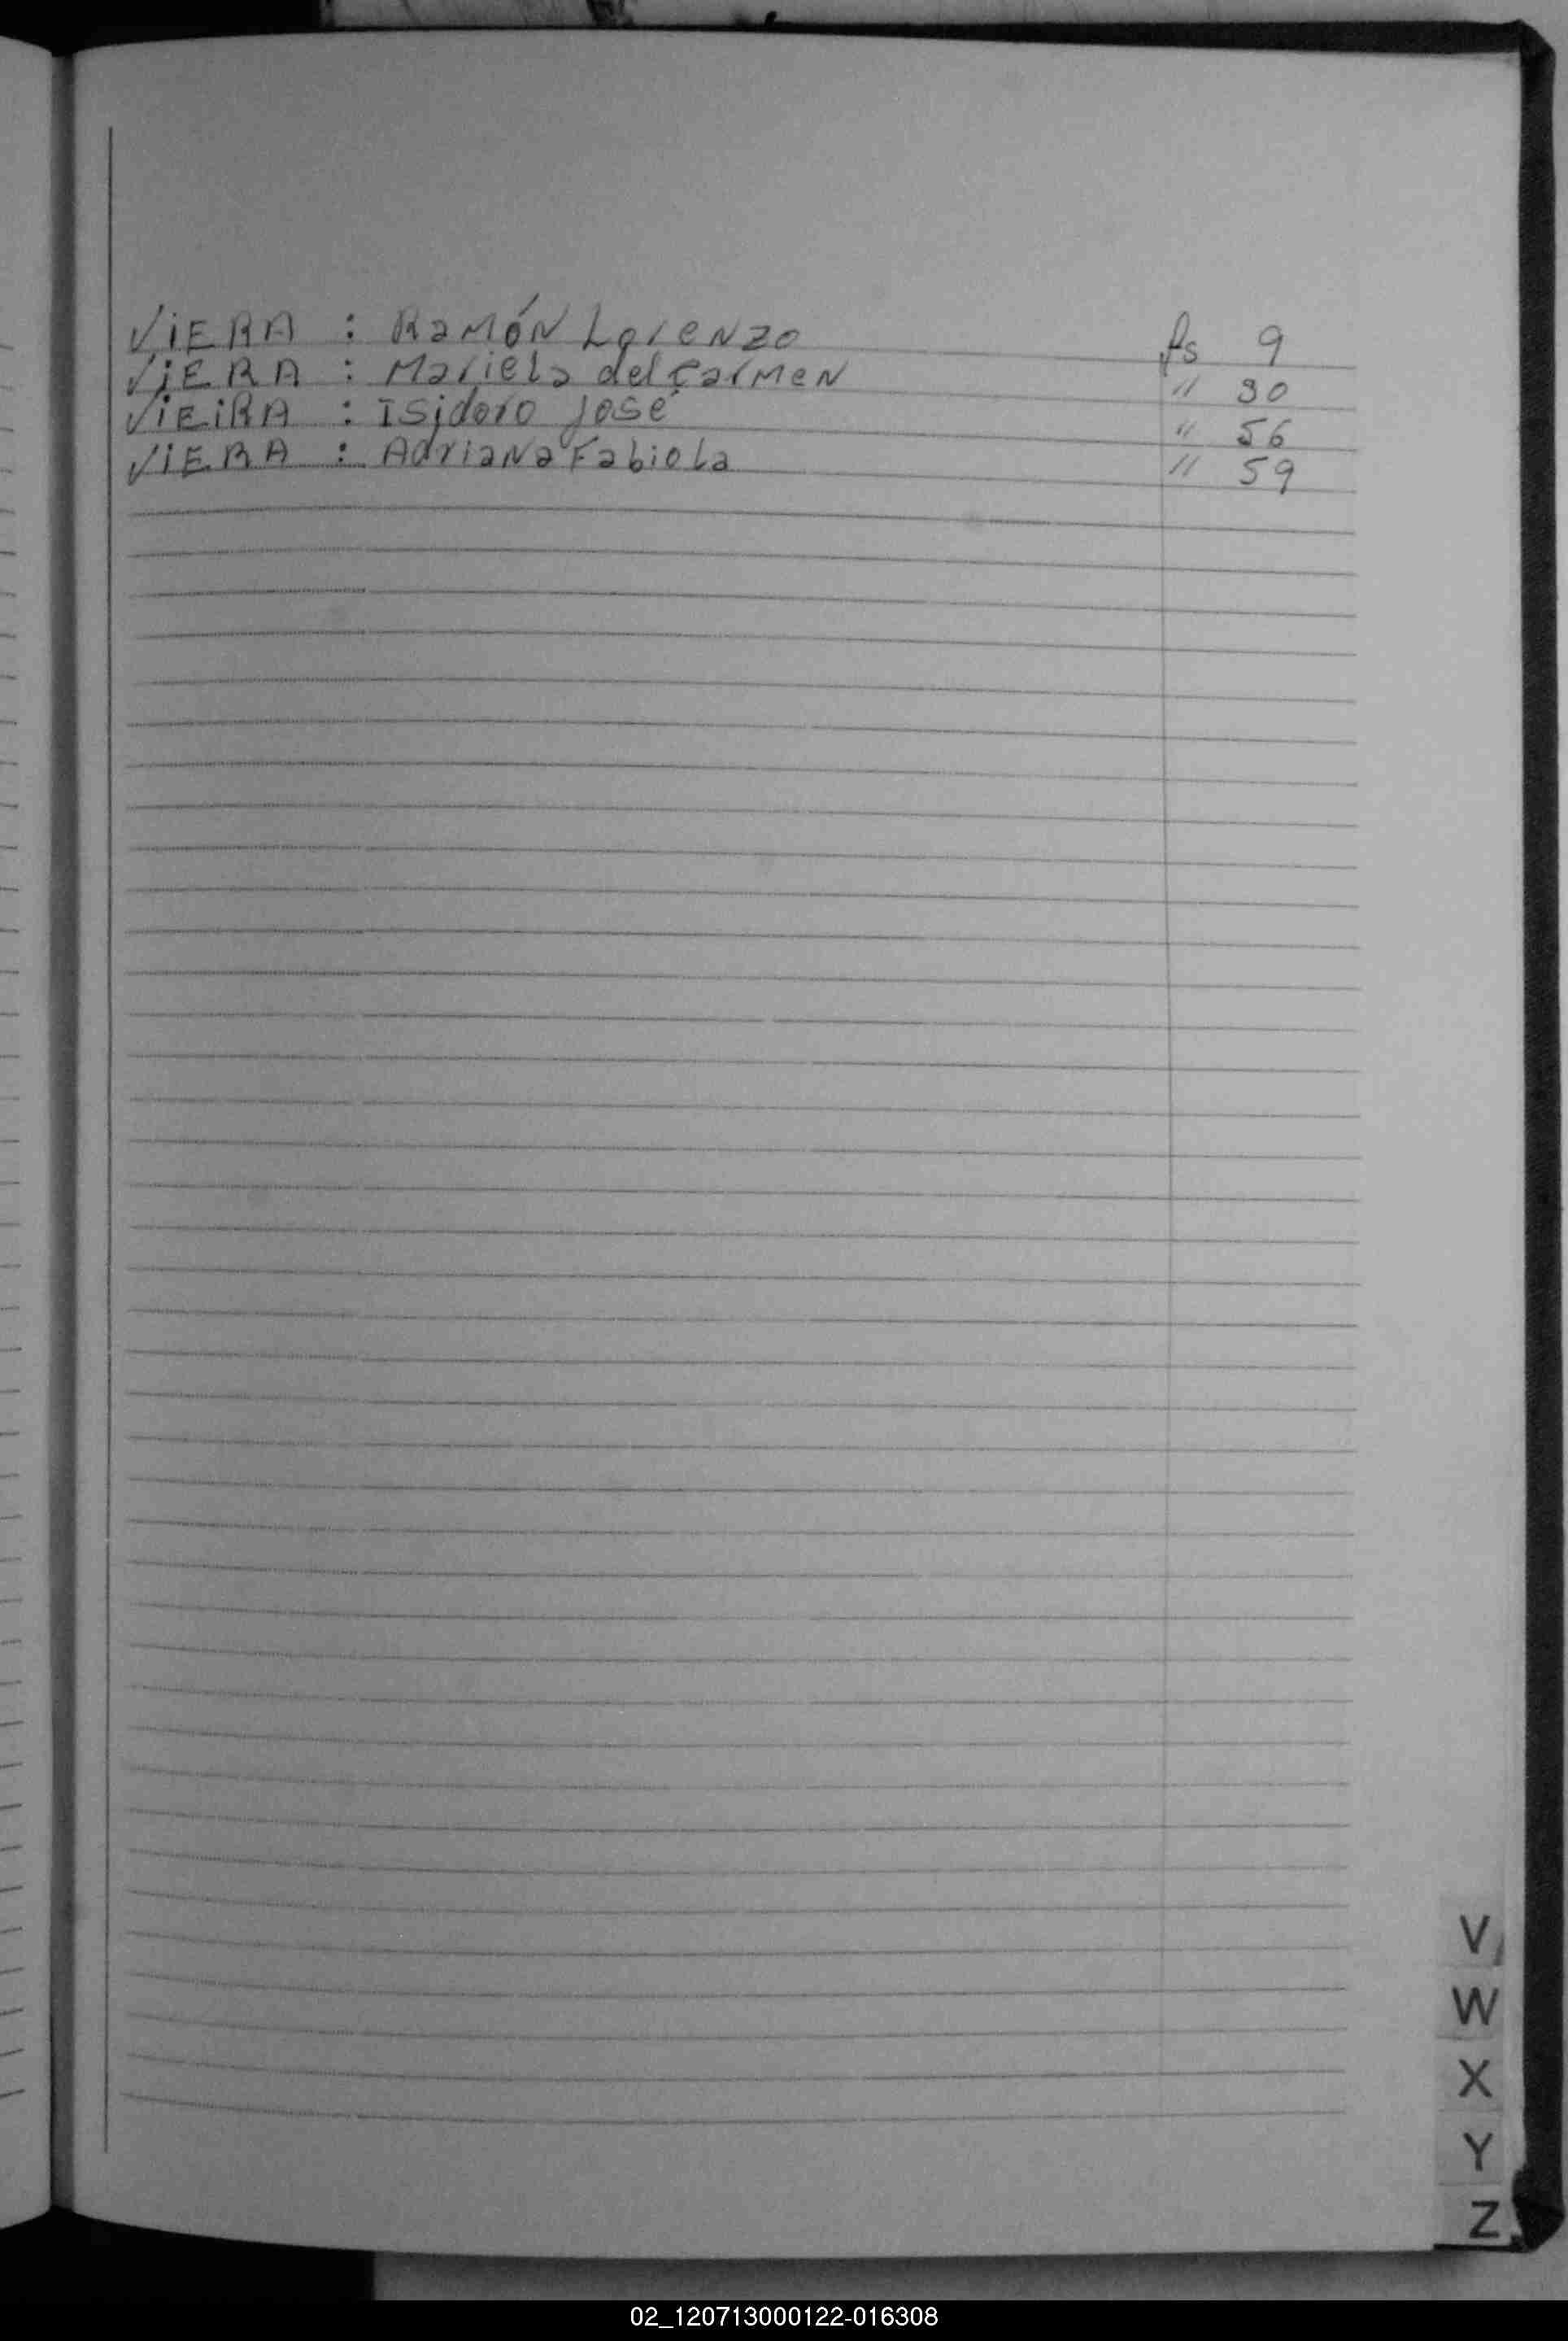 VIERA : Ramón Lorenzo fs 9
VIERA : Mariela del Carmen " 30
VIEIRA : Isidoro José " 56
VIERA : Adriana Fabiola " 59
V
W
X
Y
Z
02_120713000122-016308